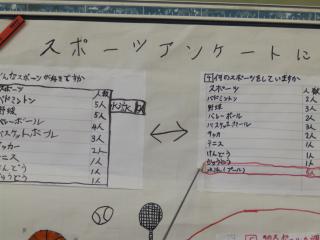 スポーツアンケートに
どんなスポーツが好きですか
スポーツ 人数
バドミントン 5人
野球 5人
バレーボール 5人
バスケットボール 4人
サッカー 3人
テニス 2人
けんどう 1人
じゅうどう 1人
水泳 2人
今何のスポーツをしていますか
スポーツ 人数
バドミントン 2人
野球 3人
バレーボール 2人
バスケットボール 3人
サッカー 2人
テニス 1人
けんどう 1人
じゅうどう 1人
水泳(プール) 5人